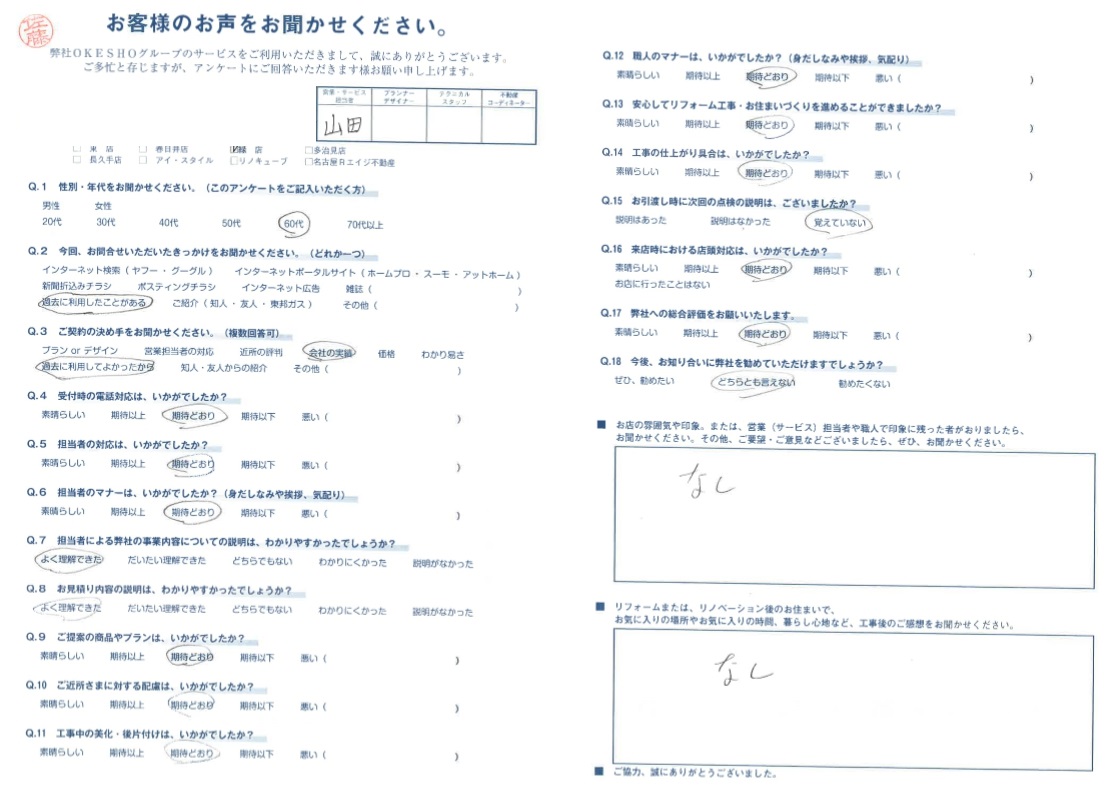 佐藤
お客様のお声をお聞かせください。
弊社OKESHOグループのサービスをご利用いただきまして、誠にありがとうございます。
ご多忙と存じますが、アンケートにご回答いただきます様お願い申し上げます。
営業・サービス担当者 プランナーデザイナー テクニカルスタッフ 不動産コーディネーター
山田
□ 本 店 □ 春日井店 ☑緑 店 □多治見店
□ 長久手店 □ アイ・スタイル □リノキューブ □名古屋Rエイジ不動産
Q.1 性別・年代をお聞かせください。（このアンケートをご記入いただく方）
男性 女性
20代 30代 40代 50代 60代 70代以上
Q.2 今回、お問合せいただいたきっかけをお聞かせください。（どれか一つ）
インターネット検索（ ヤフー ・ グーグル ） インターネットポータルサイト（ ホームプロ ・ スーモ ・ アットホーム ）
新聞折込みチラシ ポスティングチラシ インターネット広告 雑誌（ ）
過去に利用したことがある ご紹介（ 知人 ・ 友人 ・ 東邦ガス ） その他（ ）
Q.3 ご契約の決め手をお聞かせください。（複数回答可）
プラン or デザイン 営業担当者の対応 近所の評判 会社の実績 価格 わかり易さ
過去に利用してよかったから 知人・友人からの紹介 その他（ ）
Q.4 受付時の電話対応は、いかがでしたか？
素晴らしい 期待以上 期待どおり 期待以下 悪い（ ）
Q.5 担当者の対応は、いかがでしたか？
素晴らしい 期待以上 期待どおり 期待以下 悪い（ ）
Q.6 担当者のマナーは、いかがでしたか？（身だしなみや挨拶、気配り）
素晴らしい 期待以上 期待どおり 期待以下 悪い（ ）
Q.7 担当者による弊社の事業内容についての説明は、わかりやすかったでしょうか？
よく理解できた だいたい理解できた どちらでもない わかりにくかった 説明がなかった
Q.8 お見積り内容の説明は、わかりやすかったでしょうか？
よく理解できた だいたい理解できた どちらでもない わかりにくかった 説明がなかった
Q.9 ご提案の商品やプランは、いかがでしたか？
素晴らしい 期待以上 期待どおり 期待以下 悪い（ ）
Q.10 ご近所さまに対する配慮は、いかがでしたか？
素晴らしい 期待以上 期待どおり 期待以下 悪い（ ）
Q.11 工事中の美化・後片付けは、いかがでしたか？
素晴らしい 期待以上 期待どおり 期待以下 悪い（ ）
Q.12 職人のマナーは、いかがでしたか？（身だしなみや挨拶、気配り）
素晴らしい 期待以上 期待どおり 期待以下 悪い（ ）
Q.13 安心してリフォーム工事・お住まいづくりを進めることができましたか？
素晴らしい 期待以上 期待どおり 期待以下 悪い（ ）
Q.14 工事の仕上がり具合は、いかがでしたか？
素晴らしい 期待以上 期待どおり 期待以下 悪い（ ）
Q.15 お引渡し時に次回の点検の説明は、ございましたか？
説明はあった 説明はなかった 覚えていない
Q.16 来店時における店頭対応は、いかがでしたか？
素晴らしい 期待以上 期待どおり 期待以下 悪い（ ）
お店に行ったことはない
Q.17 弊社への総合評価をお願いいたします。
素晴らしい 期待以上 期待どおり 期待以下 悪い（ ）
Q.18 今後、お知り合いに弊社を勧めていただけますでしょうか？
ぜひ、勧めたい どちらとも言えない 勧めたくない
■ お店の雰囲気や印象。または、営業（サービス）担当者や職人で印象に残った者がおりましたら、
お聞かせください。その他、ご要望・ご意見などございましたら、ぜひ、お聞かせください。
なし
■ リフォームまたは、リノベーション後のお住まいで、
お気に入りの場所やお気に入りの時間、暮らし心地など、工事後のご感想をお聞かせください。
なし
■ ご協力、誠にありがとうございました。